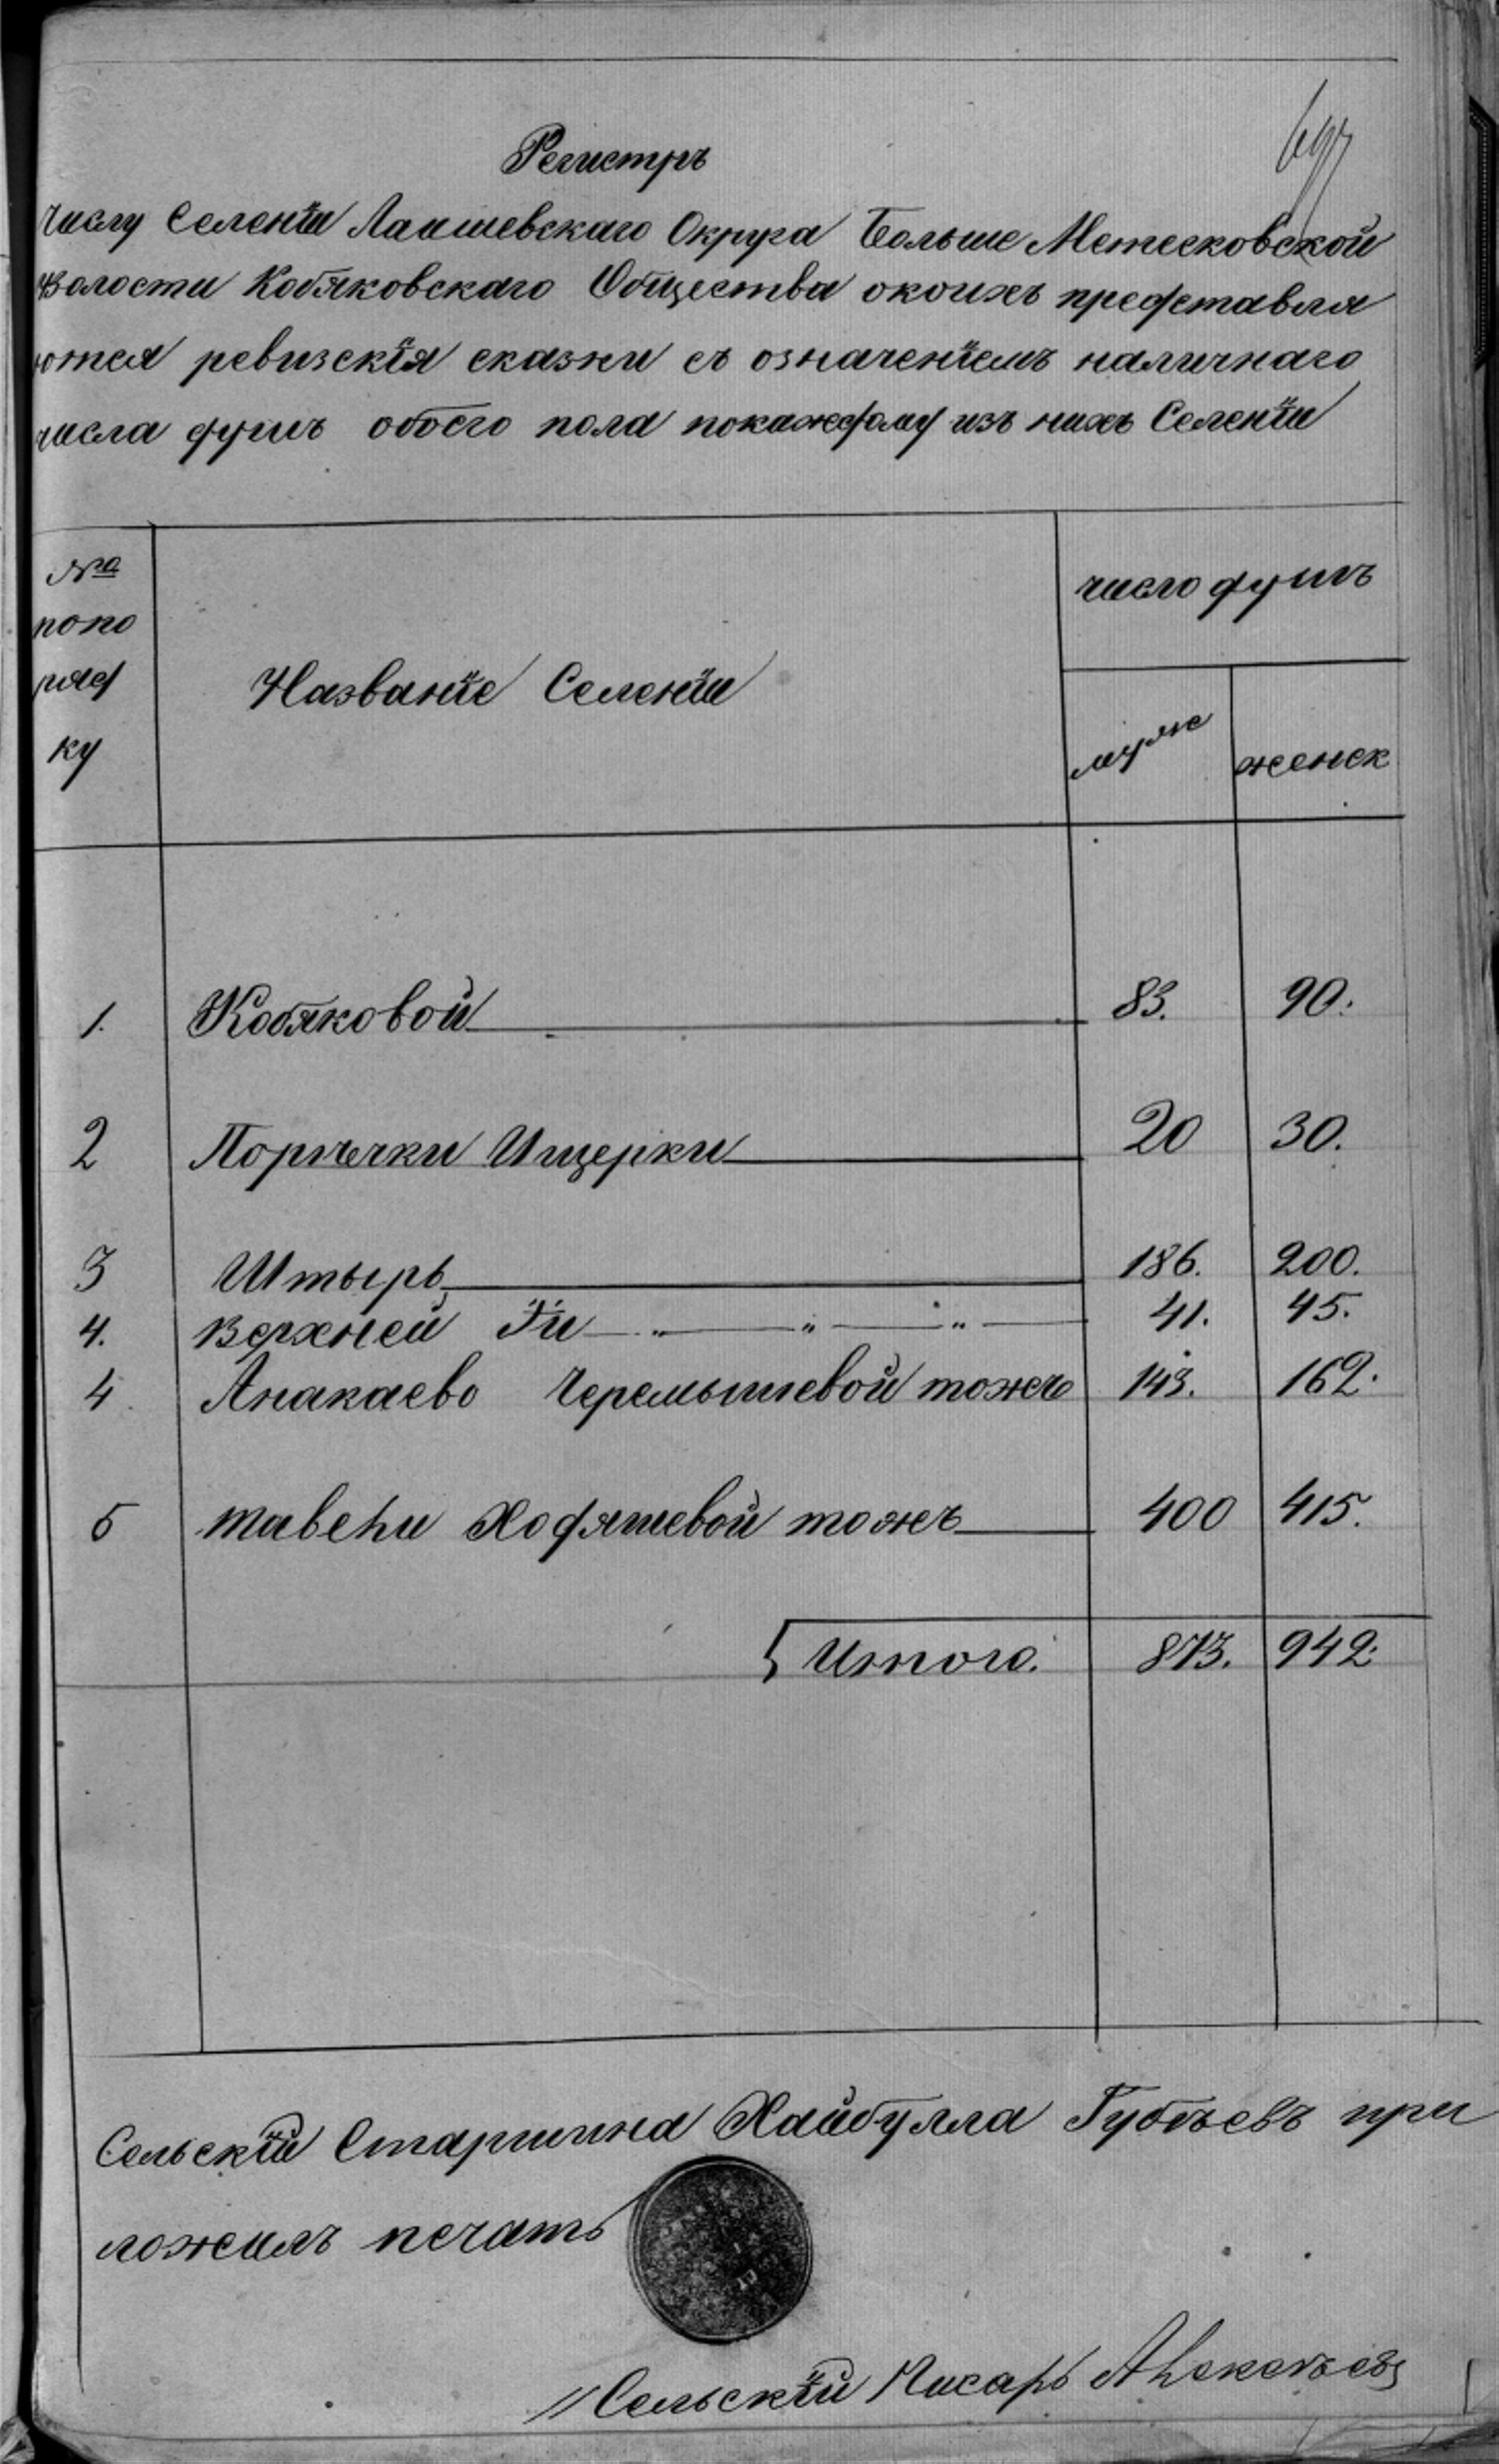 Регистръ
числу Селеніи Лаишевскаго Округа Больше Метесковской
волости Кобяковскаго Общества окоихъ представля
ются ревизскія сказки съ означеніемъ наличнаго
числа душъ обоего пола покаждому изъ нихъ Селеніи
№
попо
ряд
ку
Названіе Селеніи
число душъ
муж
женск
1. Кобяковой 83. 90.
2 Порѣчки Ищерки 20 30.
3 Штырь 186. 200.
4. Верхней Іи 41. 45.
4 Анакаево Черемышевой тожъ 143. 162.
5 Мавени Ходяшевой тожъ 400 415.
Итого. 873. 942.
Сельскій Старшина Хайбулла Губѣевъ при
ложилъ печать
Сельскій Писарь